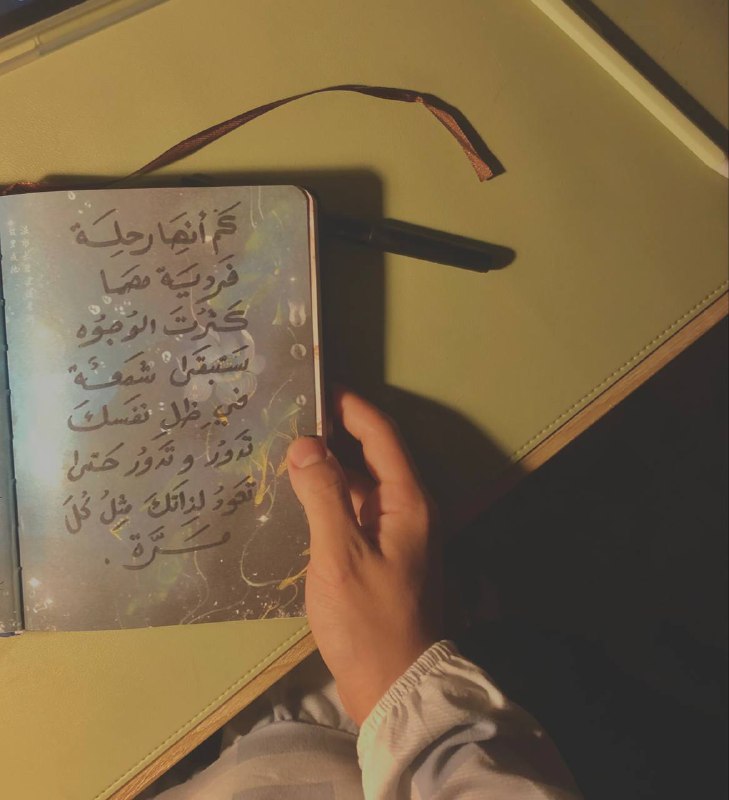 كَم أنهَا رحلِـة
فَردِيَـة مهما
كَـثُرتَ الوُجوُه
سَتبقَى شمعَـة
في ظِلِ نَفسَـكَ
تَدوُرُ و تَدوُر حَتى
تَعودُ لِذاتَكَ مِثلُ كُلَ
مَـرَّة .